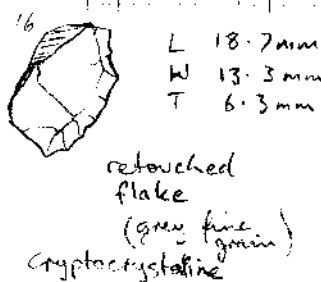 16
L 18.7mm
W 13.3mm
T 6.3mm
retouched
flake
(grey fine
grain)
Cryptocrystalline